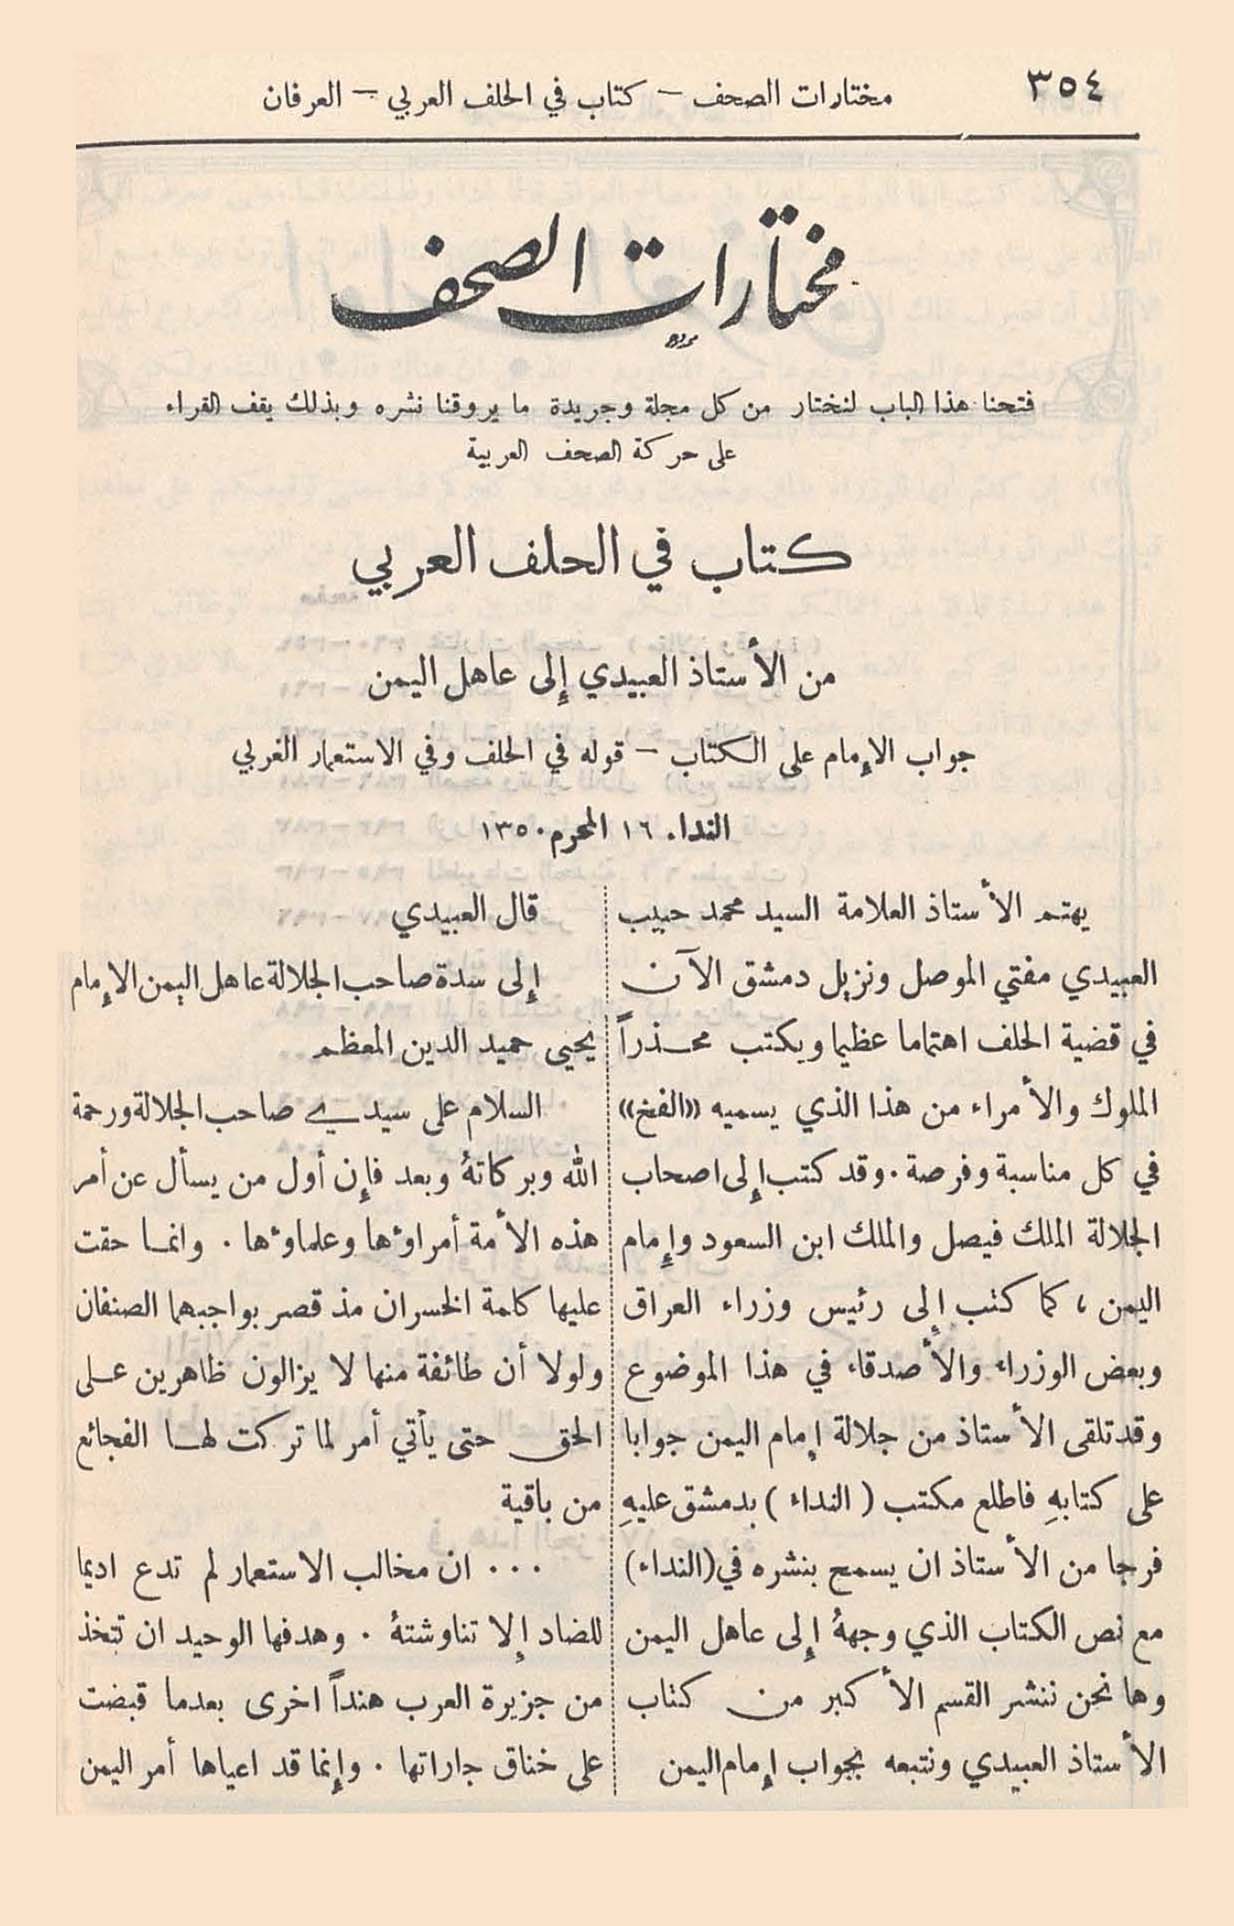 ٣٥٤
مختارات الصحف — كتاب في الحلف العربي — العرفان
مختارات الصحف
فتحنا هذا الباب لنختار من كل مجلة وجريدة ما يروقنا نشره وبذلك يقف القراء
على حركة الصحف العربية
كتاب في الحلف العربي
من الأستاذ العبيدي إلى عاهل اليمن
جواب الإمام على الكتاب — قوله في الحلف وفي الاستعمار الغربي
النداء ١٦ المحرم ١٣٥٠
يهتم الأستاذ العلامة السيد محمد حبيب
العبيدي مفتي الموصل ونزيل دمشق الآن
في قضية الحلف اهتماما عظيما ويكتب محذراً
الملوك والأمراء من هذا الذي يسميه «الفخ»
في كل مناسبة وفرصة . وقد كتب إلى اصحاب
الجلالة الملك فيصل والملك ابن السعود وإمام
اليمن ، كما كتب إلى رئيس وزراء العراق
وبعض الوزراء والأصدقاء في هذا الموضوع
وقد تلقى الأستاذ من جلالة إمام اليمن جوابا
على كتابهِ فاطلع مكتب ( النداء ) بدمشق عليهِ
فرجا من الأستاذ ان يسمح بنشره في (النداء)
مع نص الكتاب الذي وجههُ إلى عاهل اليمن
وها نحن ننشر القسم الأكبر من كتاب
الأستاذ العبيدي ونتبعه بجواب إمام اليمن
قال العبيدي
إلى سدة صاحب الجلالة عاهل اليمن الإمام
يحيى حميد الدين المعظم
السلام على سيدي صاحب الجلالة ورحمة
الله وبركاتهُ وبعد فإن أول من يسأل عن أمر
هذه الأمة أمراؤها وعلماؤها . وانما حقت
عليها كلمة الخسران مذ قصر بواجبهما الصنفان
ولولا أن طائفة منها لا يزالون ظاهرين على
الحق حتى يأتي أمر لما تركت لها الفجائع
من باقية
... ان مخالب الاستعمار لم تدع اديما
للضاد إلا تناوشتهُ . وهدفها الوحيد ان تتخذ
من جزيرة العرب هنداً اخرى بعدما قبضت
على خناق جاراتها . وإنما قد اعياها أمر اليمن